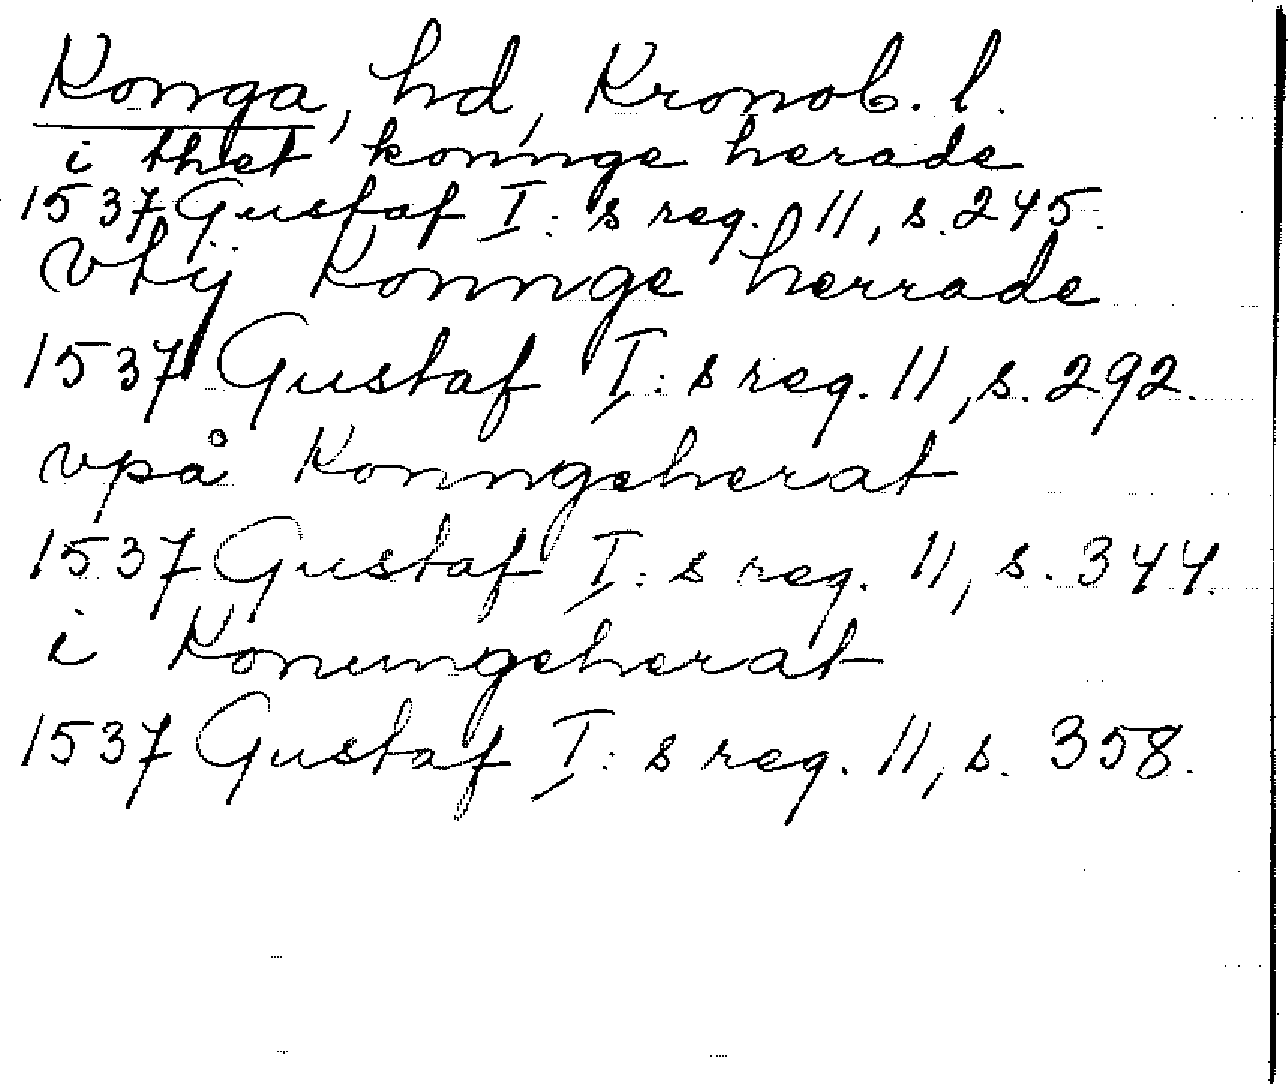 Konga, hd, Kronob. l.
i thet konnge herade
1537 Gustaf I:s reg. 11, s. 245.
vtij Konnge herrade
1537 Gustaf I:s reg. 11, s. 292.
vpå Konngeherat
1537 Gustaf I:s reg. 11, s. 344.
i Konungeherat
1537 Gustaf I:s reg. 11, s. 358.